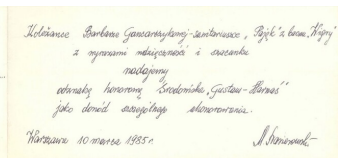 Koleżance Barbarze Gancarczykowej-sanitariuszce „Pająk” z baonu „Wigry”
z wyrazami wdzięczności i szacunku
nadajemy
odznakę honorową Środowiska „Gustaw-Harnaś”
jako dowód szczególnego uhonorowania.
Warszawa 10 marca 1985 r.